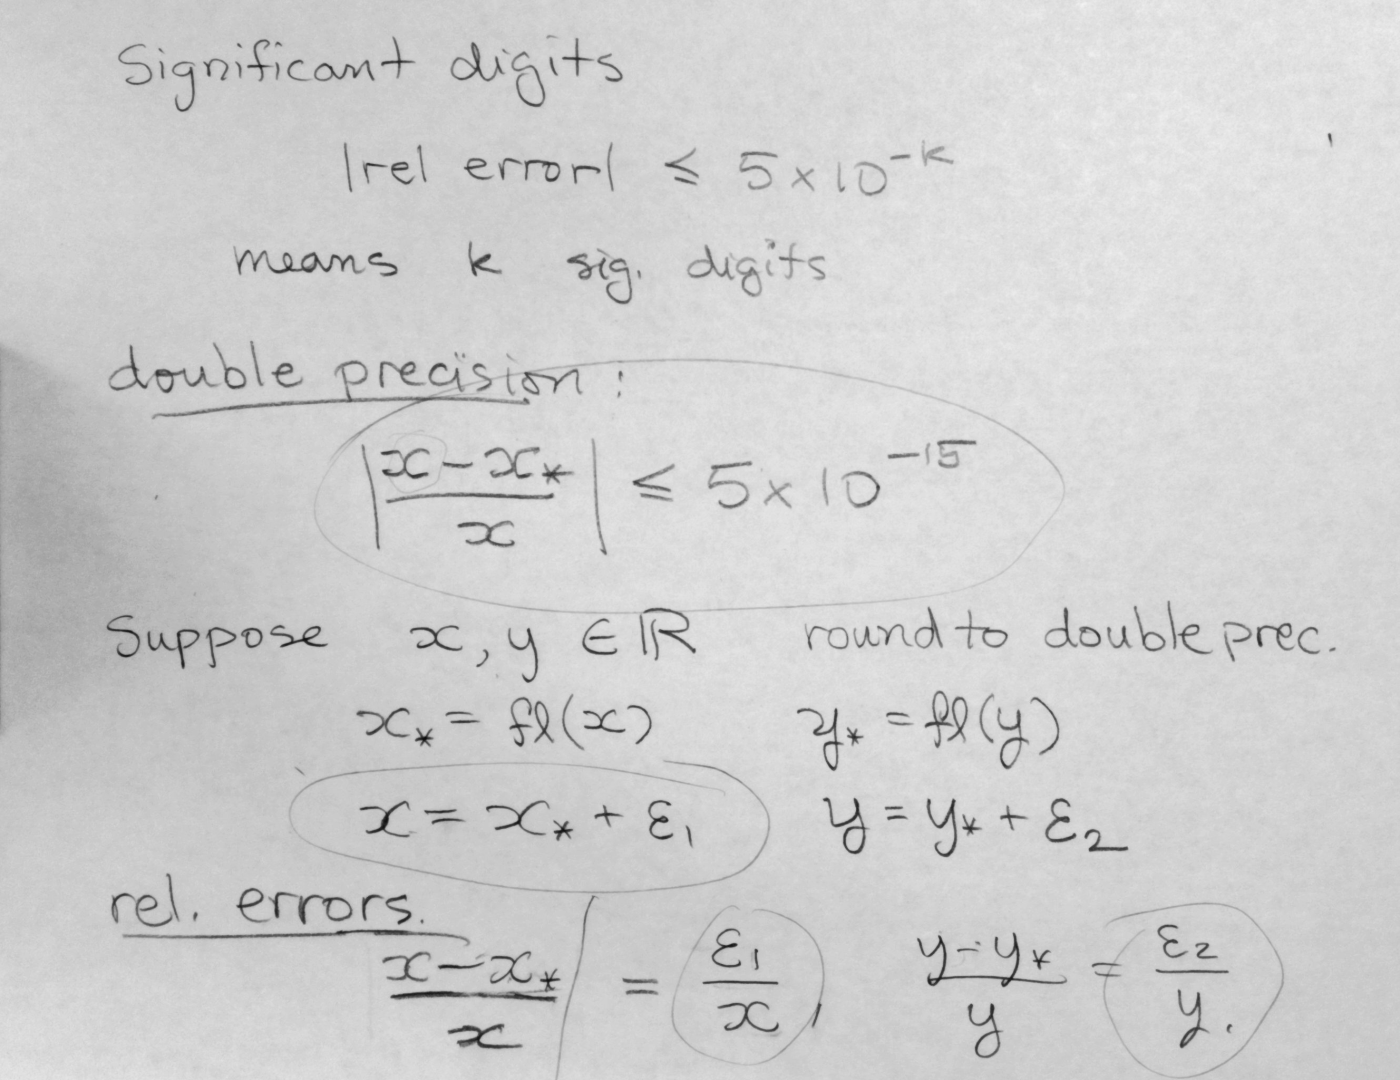 Significant digits
|rel error| ≤ 5×10^-k
means k sig. digits
double precision:
|(x-x_*)/x| ≤ 5×10^-15
Suppose x, y ∈ ℝ round to double prec.
x_* = fl(x) y_* = fl(y)
x = x_* + ε_1 y = y_* + ε_2
rel. errors.
(x-x_*)/x = ε_1/x, (y-y_*)/y = ε_2/y.